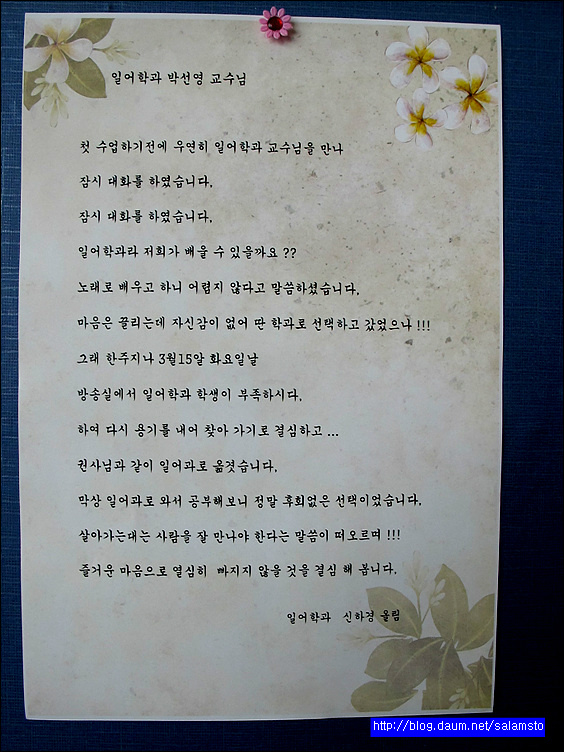 일어학과 박선영 교수님
첫 수업하기전에 우연히 일어학과 교수님을 만나
잠시 대화를 하였습니다.
잠시 대화를 하였습니다.
일어학과라 저희가 배울 수 있을까요 ??
노래로 배우고 하니 어렵지 않다고 말씀하셨습니다.
마음은 끌리는데 자신감이 없어 딴 학과로 선택하고 갔었으나 !!!
그래 한주지나 3월15알 화요일날
방송실에서 일어학과 학생이 부족하시다.
하여 다시 용기를 내어 찾아 가기로 결심하고 ...
권사님과 같이 일어과로 옮겻습니다.
막상 일어과로 와서 공부해보니 정말 후회없은 선택이었습니다.
살아가는대는 사람을 잘 만나야 한다는 말씀이 떠오르며 !!!
즐거운 마음으로 열심히 빠지지 않을 것을 결심 해 봅니다.
일어학과 신하경 올림
http://blog.daum.net/salamsto